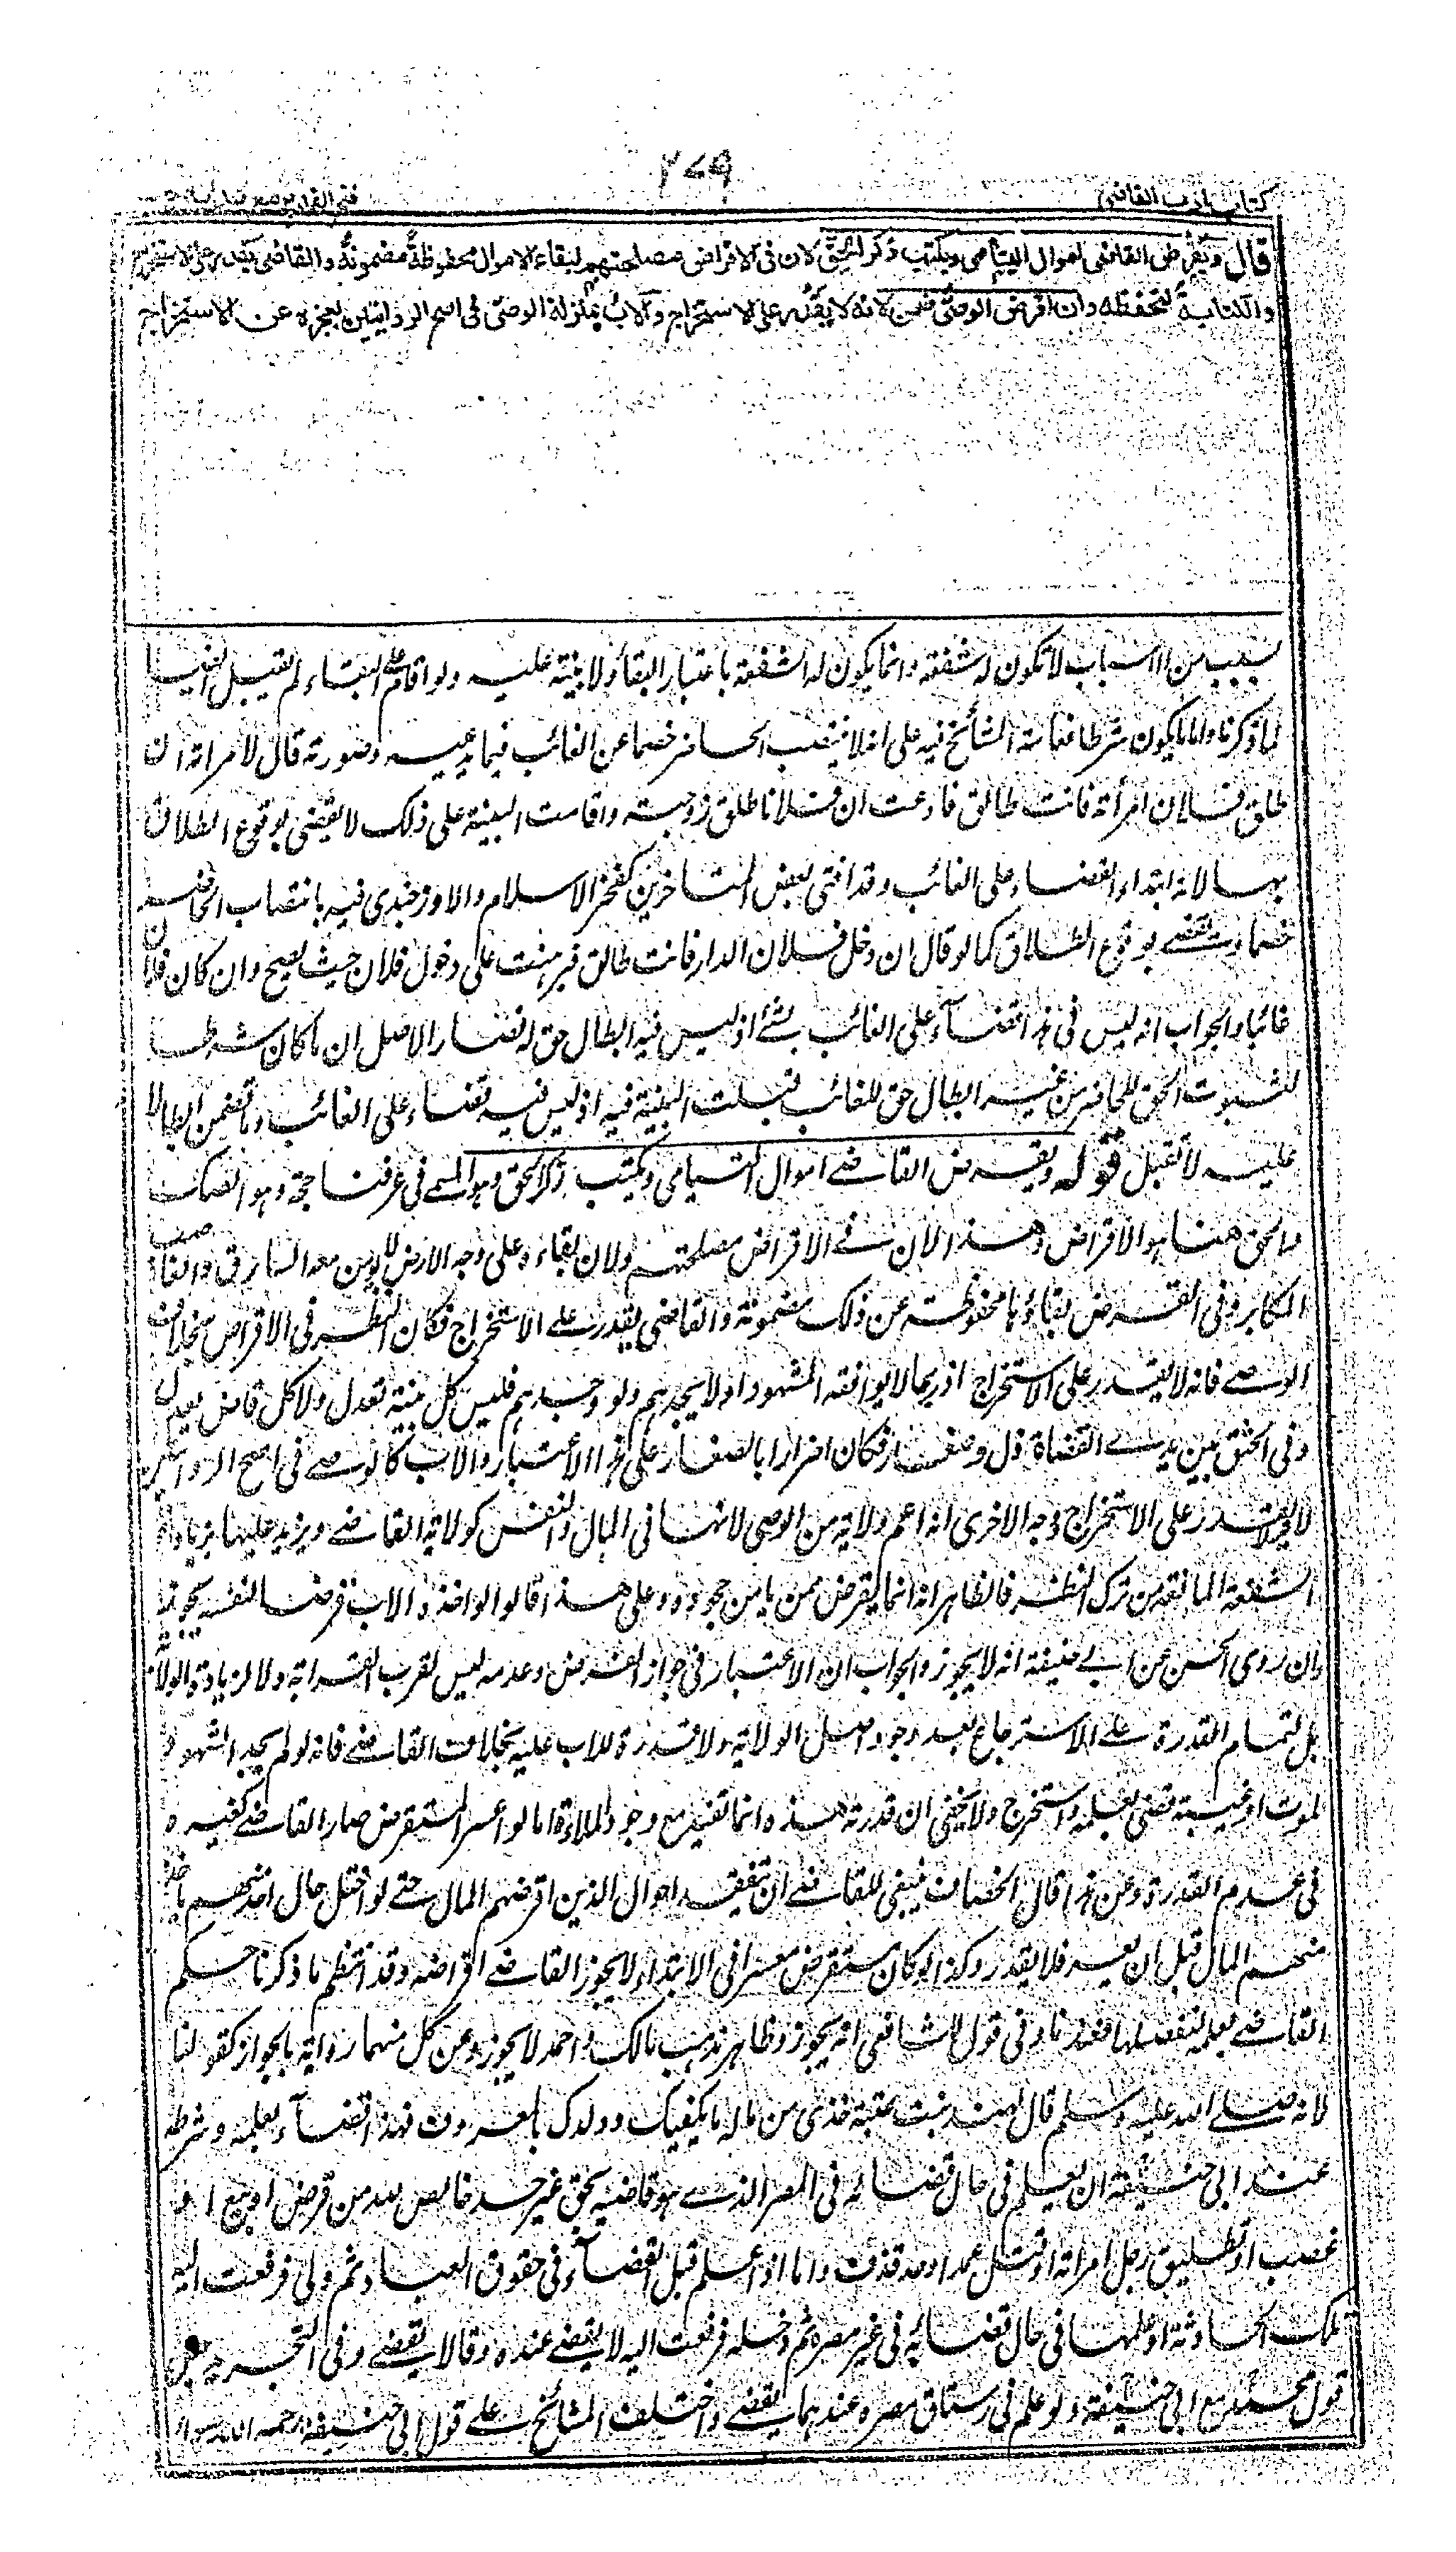 ٢٧٩
كتاب ادب القاضى
فتح القدير مع
قال ويقرض القاضى اموال اليتامى ويكتب ذكر الحق لان فى الاقراض مصلحتهم لبقاء الاموال محفوظة مضمونة والقاضى يقدر على الاستخراج
والكتابة لتحفظه وان اقرض الوصى ضمن لانه لا يقدر على الاستخراج والاب بمنزلة الوصى فى اصح الروايتين لعجزه عن الاستخراج
بسبب من الاسباب لا تكون له شفعة وانما يكون له الشفعة باعتبار البقاء ولا بينة عليه ولو اقام على البقاء لم تقبل ايضا
لما ذكرنا واما ما يكون شرطا فعامة المشائخ فيه على انه لا ينتصب الحاضر خصما عن الغائب فيما يدعيه وصورته قال لامرأته ان
طلق فلان امرأته فانت طالق فادعت ان فلانا طلق زوجته واقامت البينة على ذلك لا يقضى بوقوع الطلاق
بها لانه ابتداء القضاء على الغائب وقد افتى بعض المتأخرين كفخر الاسلام والاوزجندى فيه بانتصاب الحاضر
خصما ويقضى بوقوع الطلاق كما لو قال ان دخل فلان الدار فانت طالق فبرهنت على دخول فلان حيث يصح وان كان فلان
غائبا والجواب انه ليس فى هذا قضاء على الغائب بشئ اذ ليس فيه ابطال حق له فصار الاصل ان ما كان شرطا
لثبوت الحق للحاضر من غير ابطال حق للغائب قبلت البينة فيه اذ ليس فيه قضاء على الغائب وما تضمن ابطالا
عليه لا تقبل قوله ويقرض القاضى اموال اليتامى ويكتب ذكر الحق وهو المسمى فى عرفنا حجة وهو الصك
والحق هنا هو الاقراض وهذا لان فى الاقراض مصلحتهم ولان بقاءه على وجه الارض لا يؤمن معه السارق والغاصب
المكابر وفى القرض بقاؤها محفوظة عن ذلك مضمونة والقاضى يقدر على الاستخراج فكان النظر فى الاقراض بخلاف
الوصى فانه لا يقدر على الاستخراج اذ ربما لا يوافقه الشهود او لا يجدهم ولو وجدهم فليس كل بينة تعدل ولا كل قاض يعدل
وفى الجثو بين يدى القضاة ذل وصغار فكان اضرارا بالصغار على هذا الاعتبار والاب كالوصى فى اصح الروايتين
لانه لا يقدر على الاستخراج وجه الاخرى انه اعم ولاية من الوصى لانها فى المال والنفس كولاية القاضى ويزيد عليها بزيادة
الشفقة المانعة من ترك النظر فالظاهر انه انما يقرض ممن يأمن جحوده وعلى هذا قالوا لو اخذه الاب قرضا لنفسه يجوز
وان روى الحسن عن ابى حنيفة انه لا يجوز والجواب ان الاعتبار فى جواز القرض وعدمه ليس لقرب القرابة ولا لزيادة الولاية
بل لتمام القدرة على الاسترجاع بعد وجود اصل الولاية ولا قدرة للاب عليه بخلاف القاضى فانه لو لم يجد الشهود
لموت او غيبة قضى بعلمه واستخرج ولا يخفى ان قدرته هذه انما تفيد مع وجود الملاءة اما لو اعسر المستقرض صار القاضى كغيره
فى عدم القدرة وعن هذا قال الخصاف ينبغى للقاضى ان يتفقد احوال الذين اقرضهم المال حتى لو اختل حال احد منهم ياخذ
منهم المال قبل ان يعسر فلا يقدر وكذا لو كان مستقرض معسرا فى الابتداء لا يجوز القاضى اقراضه وقد انتظم ما ذكرنا حكم
القاضى بعلمه لنفصلها فعندنا وفى قول الشافعى انه يجوز وظاهر مذهب مالك واحمد لا يجوز وعن كل منهما رواية بالجواز كقولنا
لانه صلى الله عليه وسلم قال لهند بنت عتبة خذى من ماله ما يكفيك وولدك بالمعروف فهذا قضاء بعلمه وشرطه
عند ابى حنيفة ان يعلم فى حال قضائه فى المصر الذى هو قاضيه بحق غير حد خالص لله من قرض او بيع او
غصب او تطليق رجل امرأته او قتل عمد او حد قذف واما اذا علم قبل القضاء فى حقوق العباد ثم ولى فرفعت اليه
تلك الحادثة او علمها فى حال قضائه فى غير مصره ثم دخله فرفعت اليه لا يقضى عنده وقالا يقضى وفى التجريد جعل
قول محمد مع ابى حنيفة ولو علم فى رستاق مصره عندهما يقضى واختلف المشائخ على قول ابى حنيفة رحمه الله